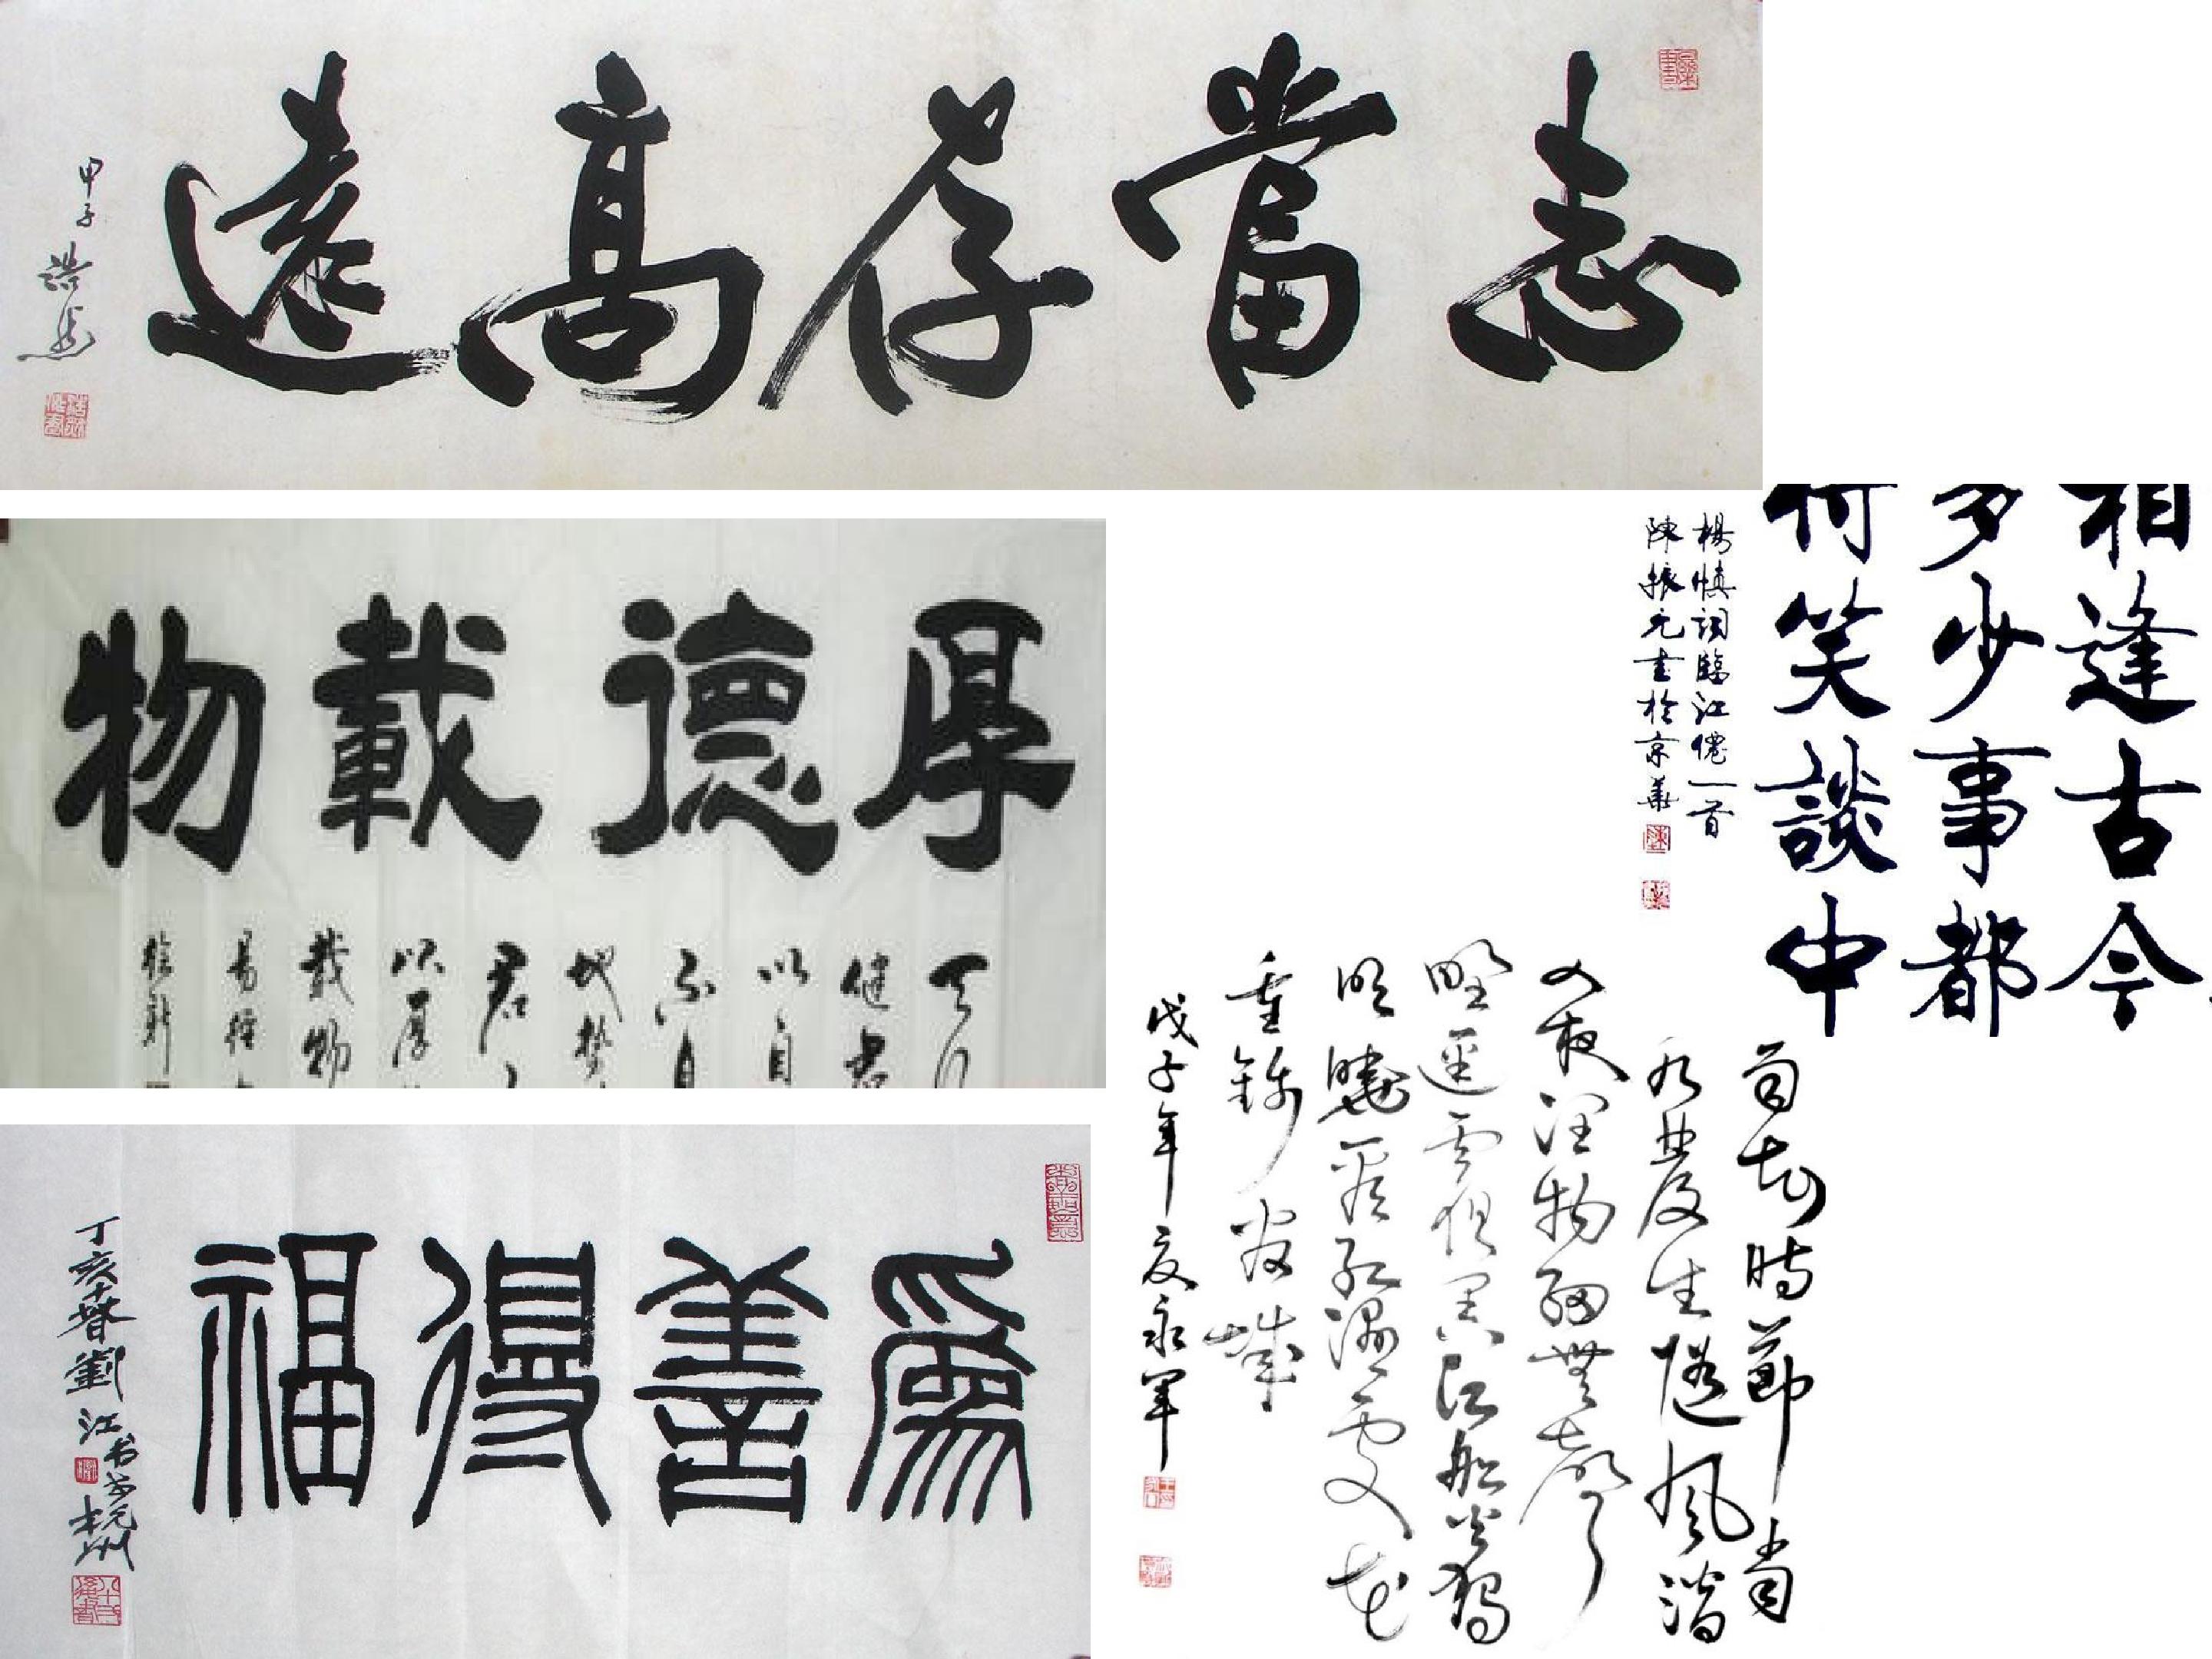 志當存高遠
甲子
厚德載物
天行
健君
以自
不
地勢
君
以厚
載物
易經
爲善得福
丁亥
劉江书於杭州
相逢古今
多少事都
付笑談中
楊慎詞臨江僊一首
陳振元書於京華
雨知時節當
乃發生隨風潛
入夜潤物細無聲
野逕雲俱黑江船火獨
明曉看紅濕處花
重錦官城
戊子年夏永军